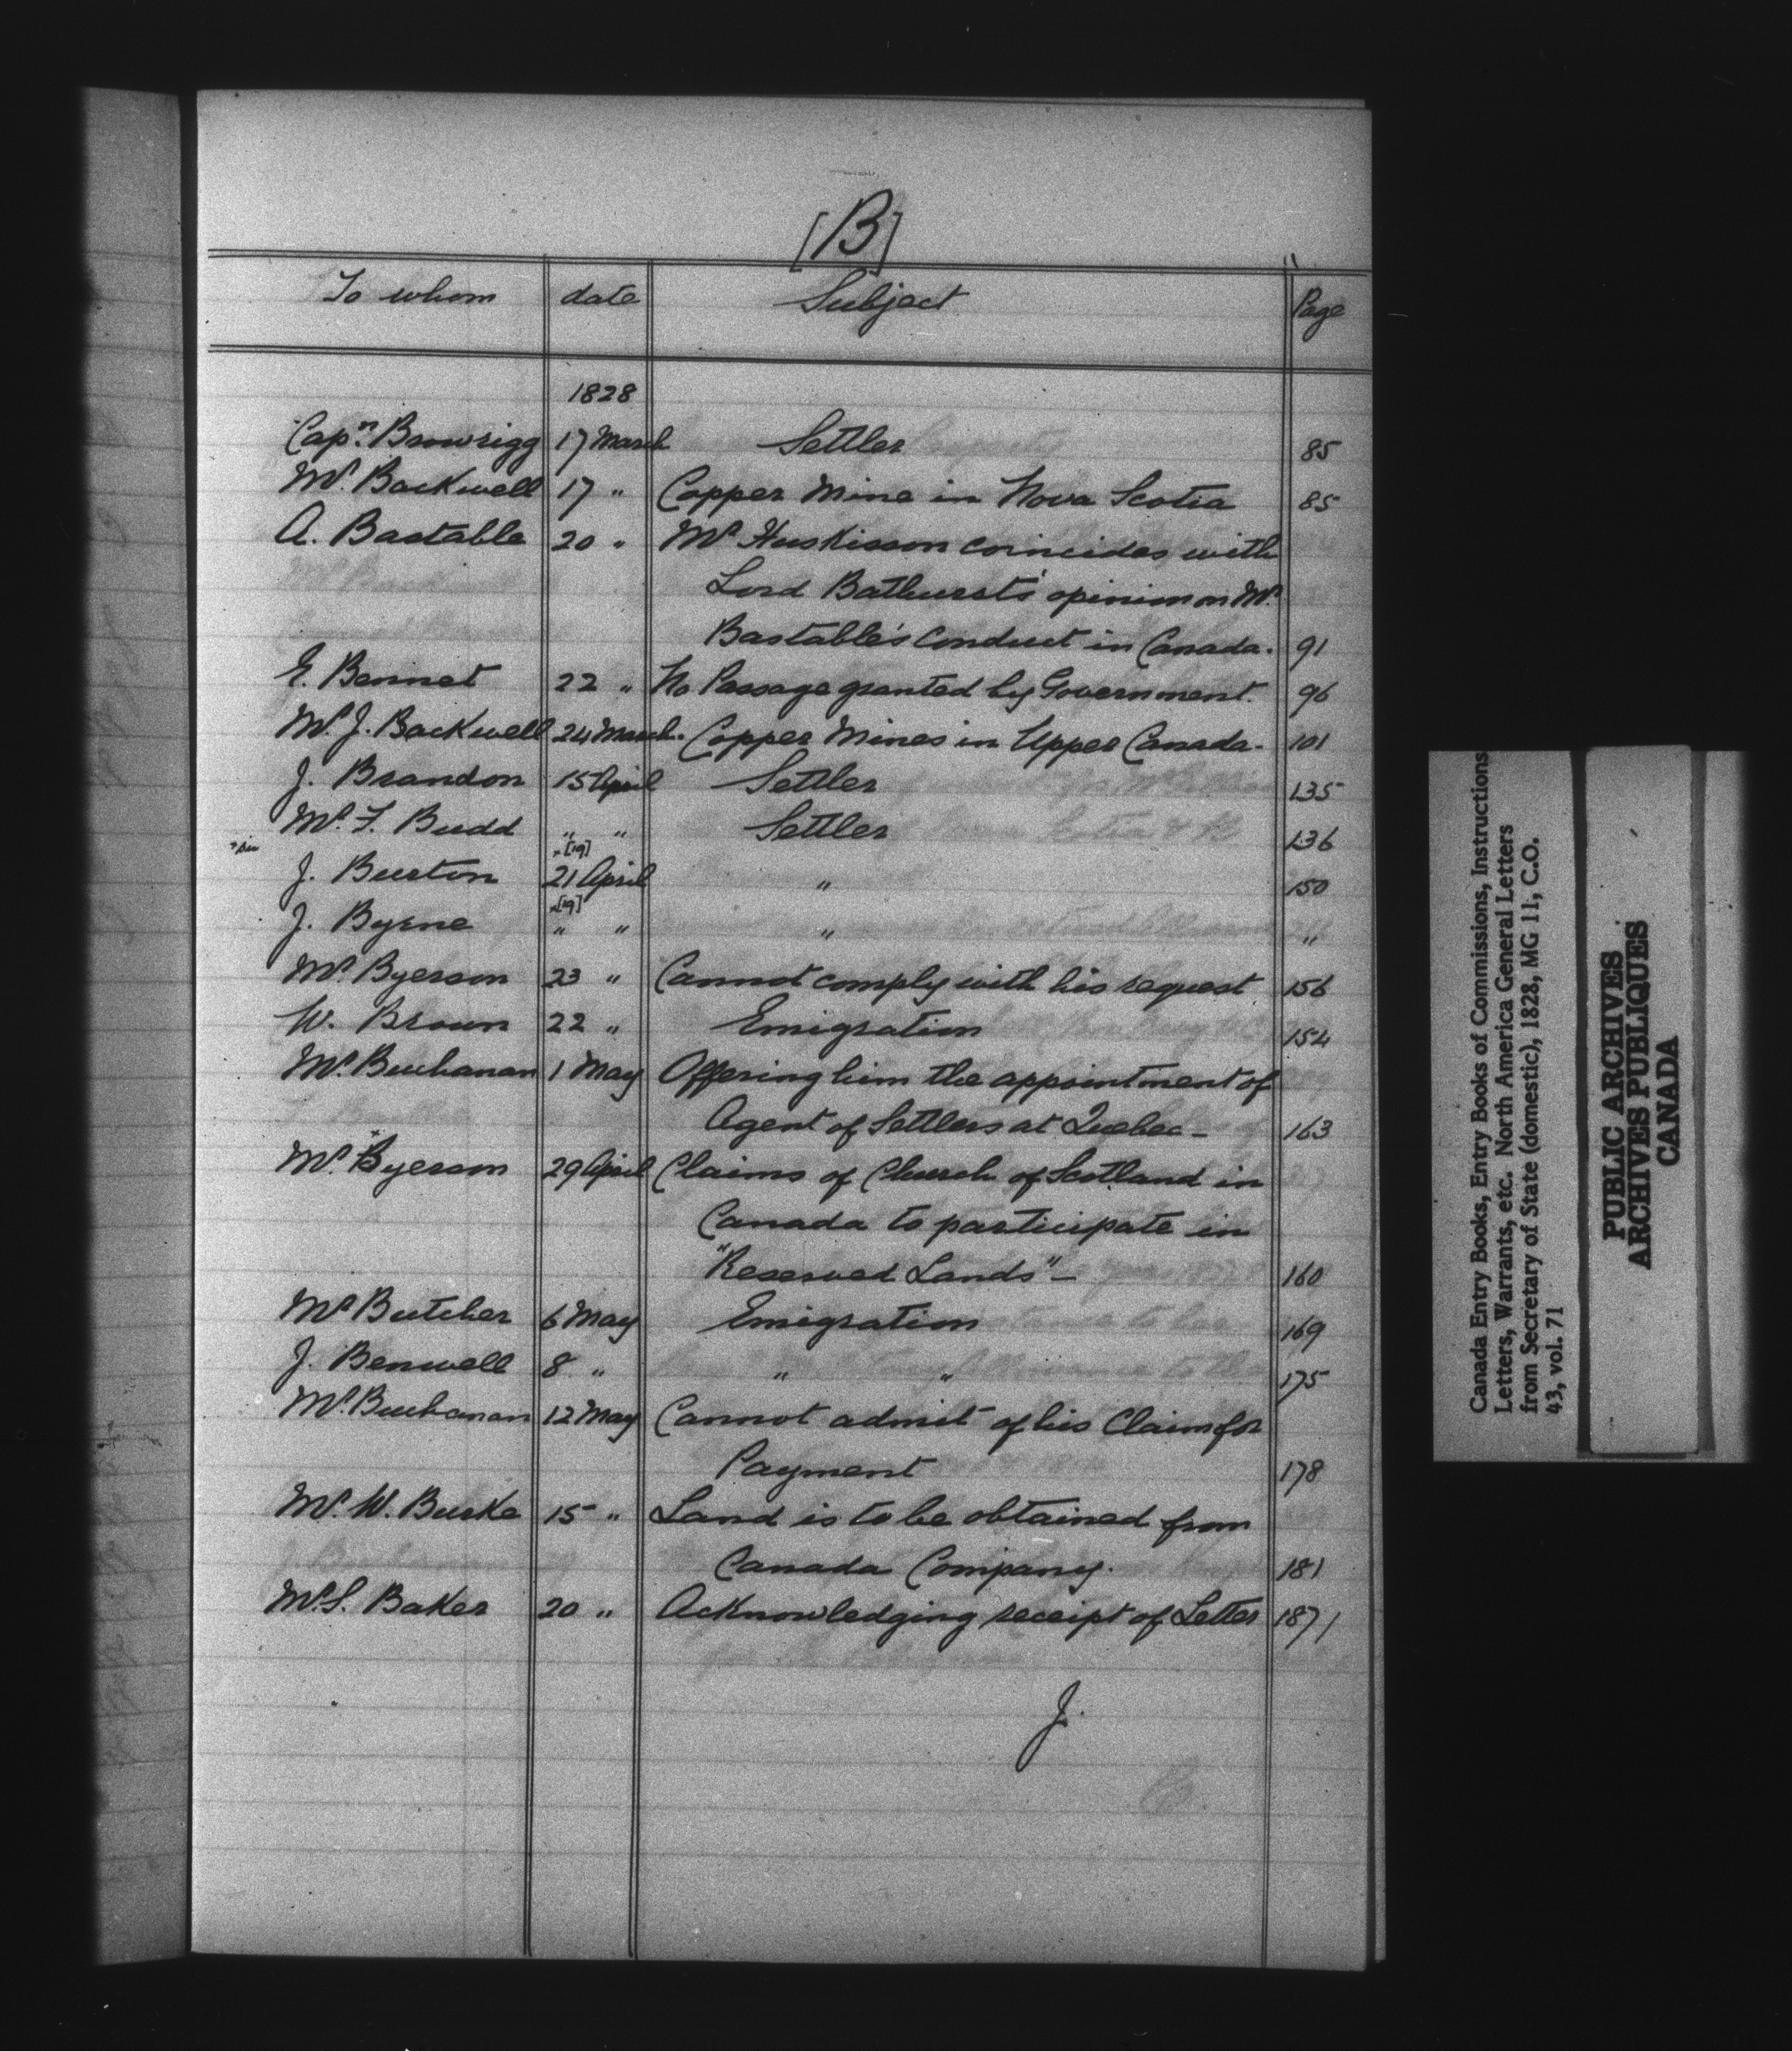 [B]
To whom date Subject Page
1828
Capn. Browrigg 17 March Settler 85
Mr. Backwell 17 " Copper Mine in Nova Scotia 85
A. Bastable 20 " Mr Huskisson coincides with
Lord Bathurst's opinion on Mr.
Bastable's conduct in Canada. 91
E. Bennet 22 " No Passage granted by Government. 96
Mr. J. Backwell 24 March. Copper Mines in Upper Canada. 101
J. Brandon 15 April Settler 135
Mr. F. Budd " " Settler 136
*[19]
J. Burton 21 April " 150
*[19]
J. Byrne " " " "
Mr. Byerson 23 " Cannot comply with his request 156
W. Brown 22 " Emigration 154
Mr. Buchanan 1 May Offering him the appointment of
Agent of Settlers at Quebec - 163
Mr. Byerson 29 April Claims of Church of Scotland in
Canada to participate in
"Reserved Lands" - 160
Mr Butcher 6 May Emigration 169
J. Benwell 8 " " " 175
Mr. Buchanan 12 May Cannot admit of his Claim for
Payment 178
Mr. W. Burke 15 " Land is to be obtained from
Canada Company. 181
Mr. S. Baker 20 " Acknowledging receipt of Letter 187/
J.
Canada Entry Books, Entry Books of Commissions, Instructions
Letters, Warrants, etc. North America General Letters
from Secretary of State (domestic), 1828, MG 11, C.O.
43, vol. 71
PUBLIC ARCHIVES
ARCHIVES PUBLIQUES
CANADA